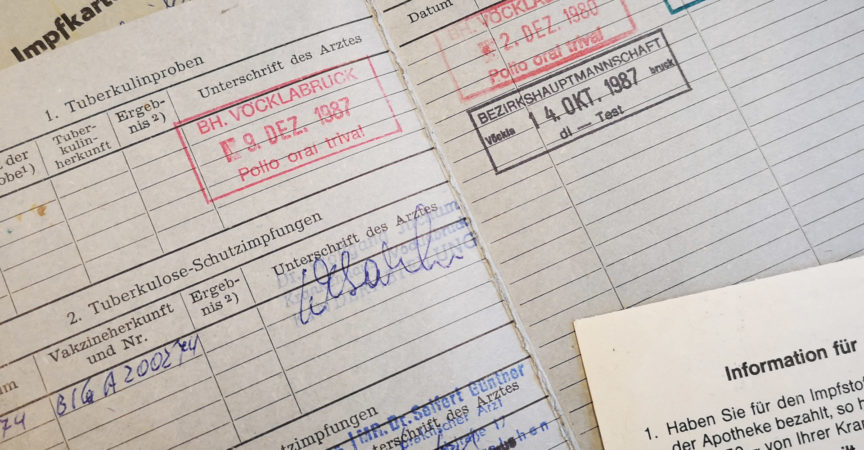 Impfkart
1. Tuberkulinproben
der
obe¹)
Tuber-
kulin-
herkunft
Ergeb-
nis ²)
Unterschrift des Arztes
BH. VÖCKLABRUCK
9. DEZ. 1987
Polio oral trival
2. Tuberkulose-Schutzimpfungen
um
Vakzineherkunft
und Nr.
Ergeb-
nis ²)
Unterschrift des Arztes
74
BIG A 2002
hutzimpfungen
Dr. Seifert Günther
terschrift des Arztes
Arzt
Datum
BH. VÖCKLABRUCK
2. DEZ. 1980
Polio oral trival
BEZIRKSHAUPTMANNSCHAFT
Vöckla
14. OKT. 1987
bruck
di — Test
Information für
1. Haben Sie für den Impfstof
der Apotheke bezahlt, so h
von Ihrer Kra